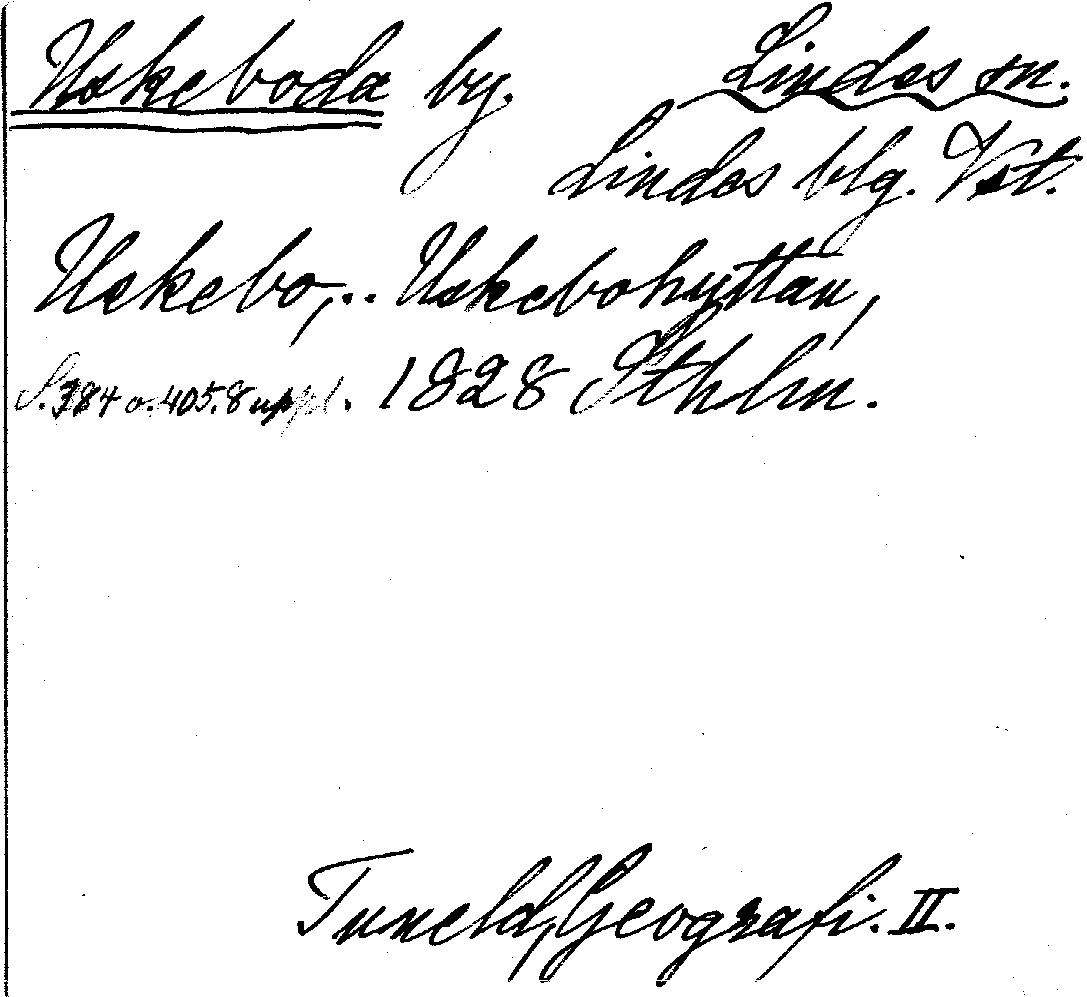 Uskeboda by. Lindes sn.
Lindes blg. Vst.
Uskebo,.. Uskebohyttan,
S. 384 o. 405. 8 uppl. 1828 Sthlm.
Tuneld, Geografi. II.